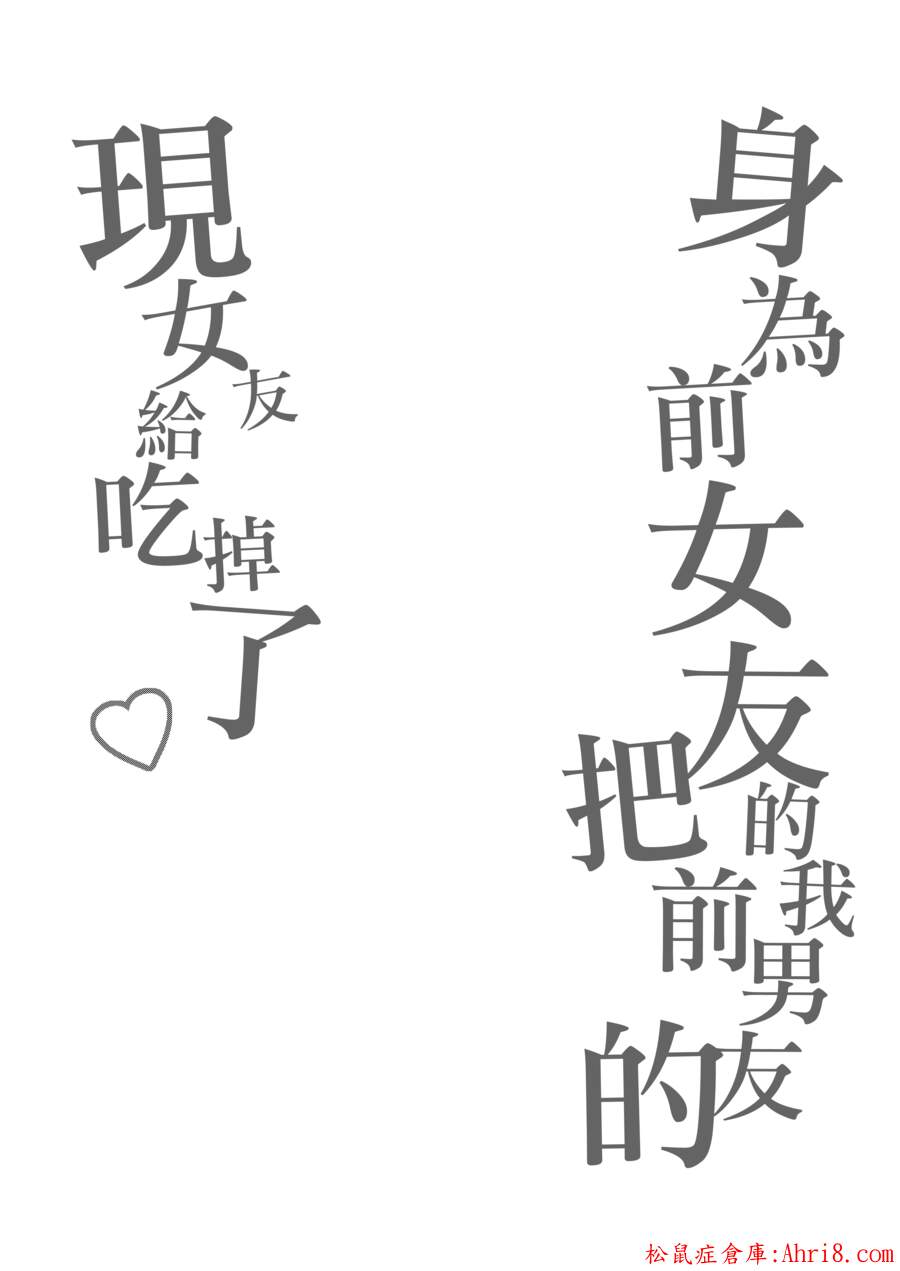 身為前女友的我
把前男友的
現女友給吃掉了♡
松鼠症倉庫:Ahri8.com